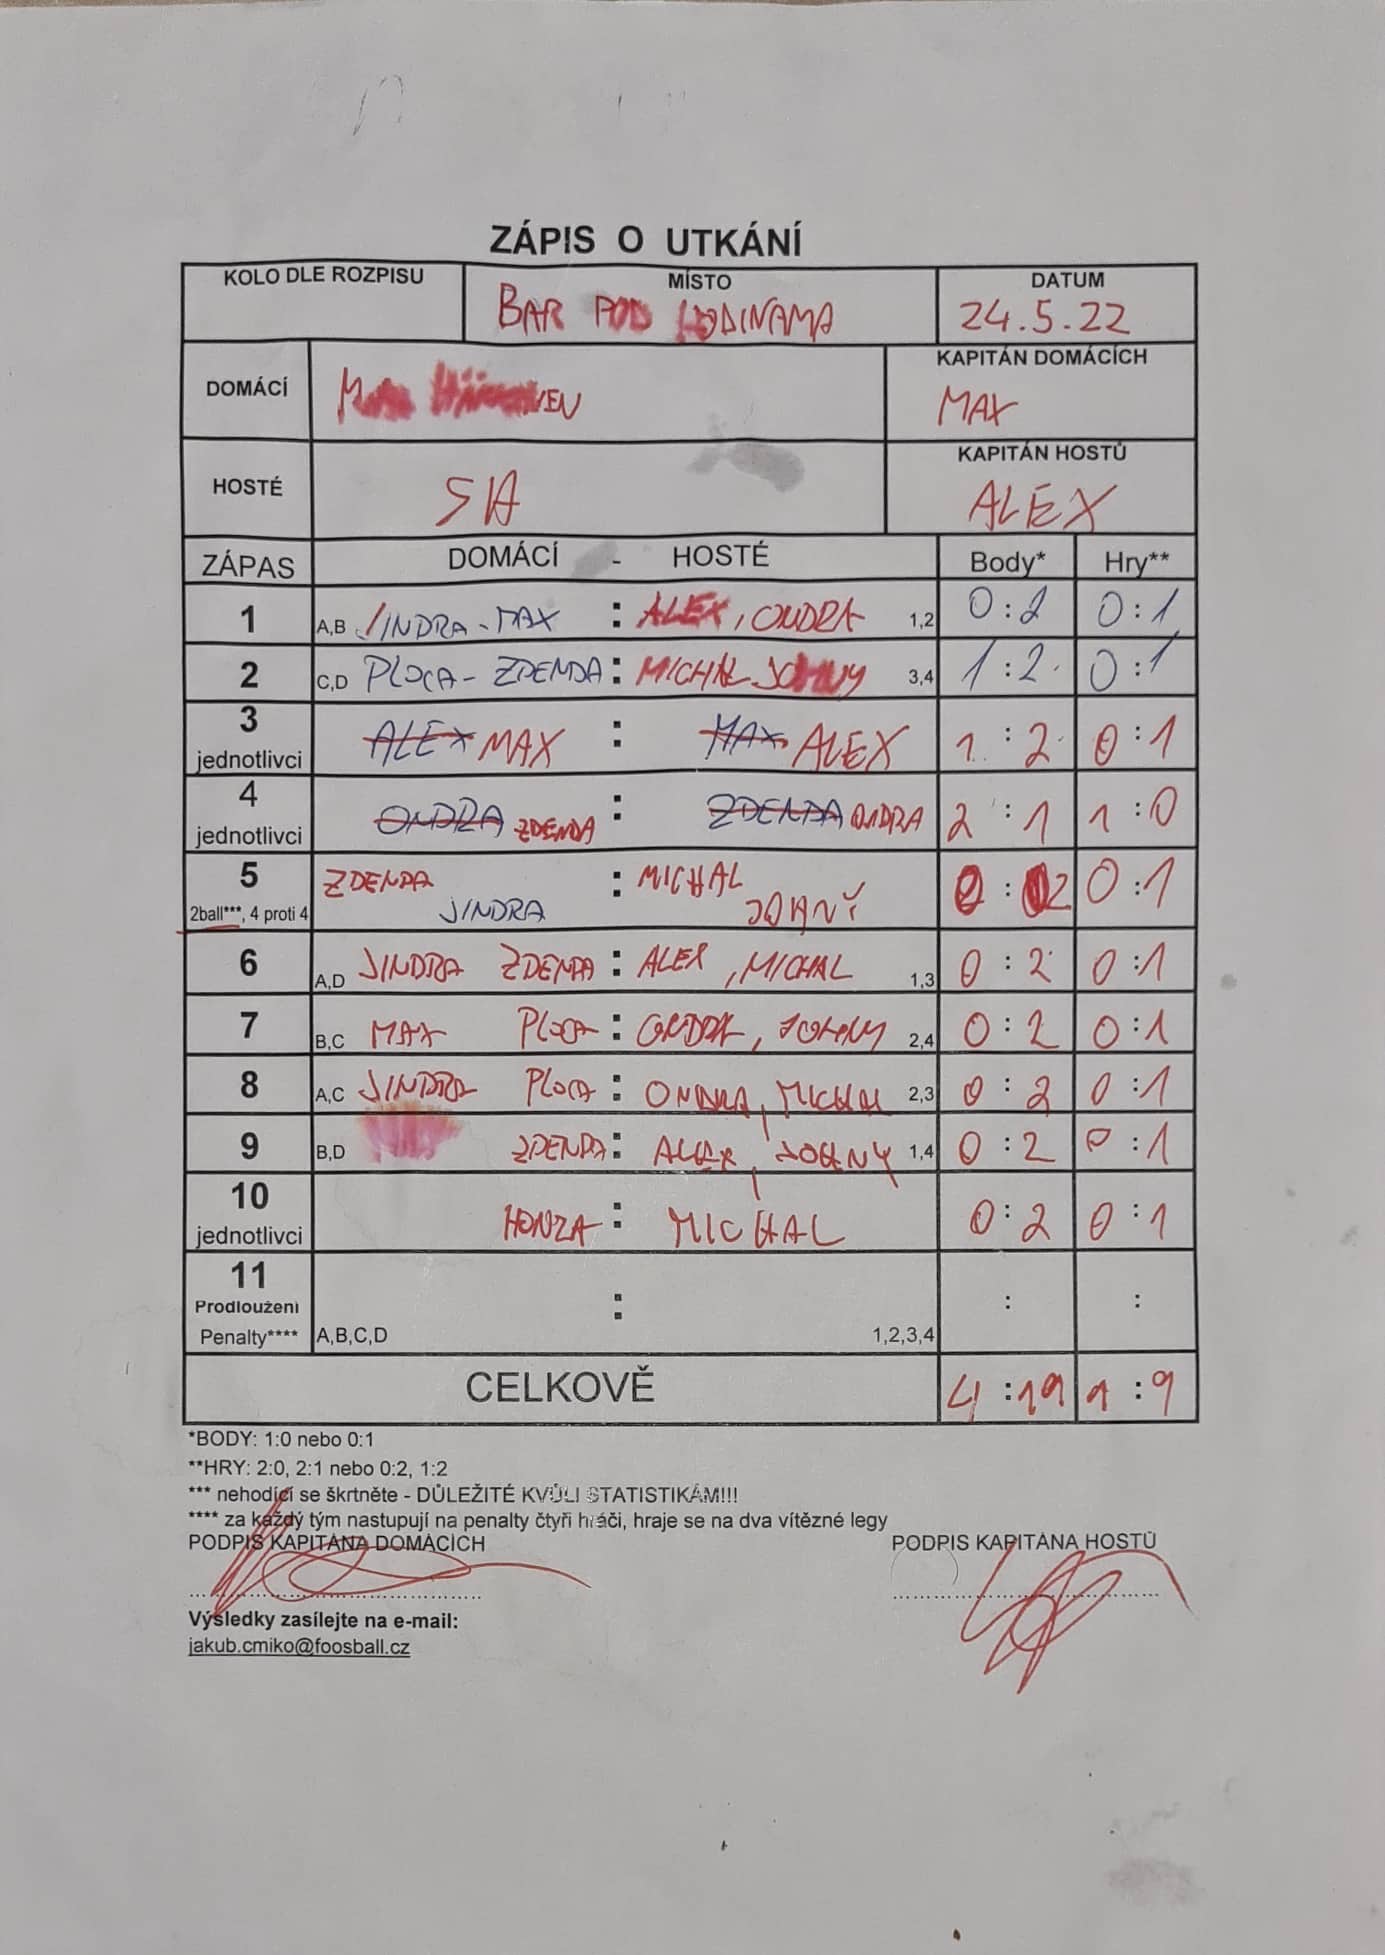 ZÁPIS O UTKÁNÍ
KOLO DLE ROZPISU MÍSTO DATUM
BAR POD HODINAMA 24.5.22
DOMÁCÍ KAPITÁN DOMÁCÍCH
MAX
HOSTÉ SIA KAPITÁN HOSTŮ
ALEX
ZÁPAS DOMÁCÍ - HOSTÉ Body* Hry**
1 A,B JINDRA - MAX : ALEX, ONDRA 1,2 0:2 0:1
2 C,D PLOCA - ZDENDA : MICHAL JOHNY 3,4 1:2 0:1
3 jednotlivci ALEX MAX : MAX ALEX 1:2 0:1
4 jednotlivci ONDRA ZDENDA : ZDENDA ONDRA 2:1 1:0
5 ZDENDA : MICHAL 0:2 0:1
2ball***, 4 proti 4 JINDRA JOHNY
6 A,D JINDRA ZDENDA : ALEX, MICHAL 1,3 0:2 0:1
7 B,C MAX PLOCA : ONDRA, JOHNY 2,4 0:2 0:1
8 A,C JINDRA PLOCA : ONDRA, MICHAL 2,3 0:2 0:1
9 B,D ZDENDA : ALEX, JOHNY 1,4 0:2 0:1
10 jednotlivci HONZA : MICHAL 0:2 0:1
11
Prodloužení : : :
Penalty**** A,B,C,D 1,2,3,4
CELKOVĚ 4:19 1:9
*BODY: 1:0 nebo 0:1
**HRY: 2:0, 2:1 nebo 0:2, 1:2
*** nehodící se škrtněte - DŮLEŽITÉ KVŮLI STATISTIKÁM!!!
**** za každý tým nastupují na penalty čtyři hráči, hraje se na dva vítězné legy
PODPIS KAPITÁNA DOMÁCÍCH PODPIS KAPITÁNA HOSTŮ
Výsledky zasílejte na e-mail:
jakub.cmiko@foosball.cz